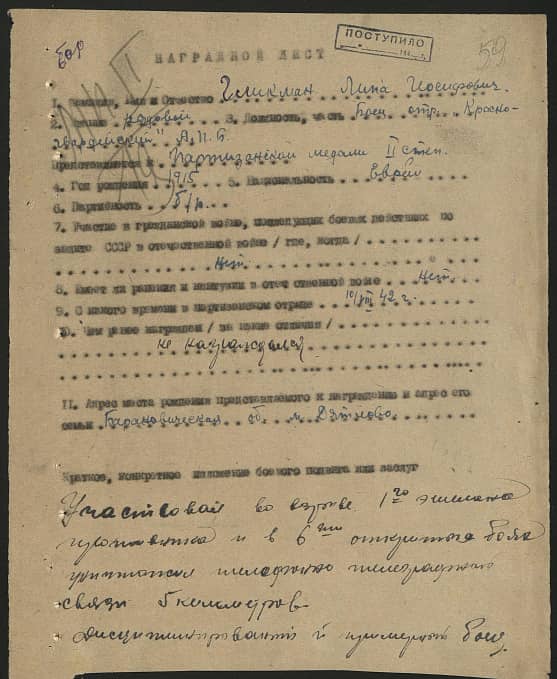 ПОСТУПИЛО
59
НАГРАДНОЙ ЛИСТ
I. Фамилия, Имя и Отчество Гликман Липа Иосифович.
2. Звание рядовой 3. Должность, часть боец отр. Красно-
гвардейский" А.П.Б.
Представляется к Партизанской медали II степ.
4. Год рождения 1915 5. Национальность Еврей
6. Партийность б/п.
7. Участие в гражданской войне, последующих боевых действиях по
защите СССР в отечественной войне / где, когда /
Нет
8. Имеет ли ранения и контузии в отечественной войне Нет.
9. С какого времени в партизанском отряде 10/VIII 42 г.
10. Чем ранее награжден / за какие отличия /
не награждался
II. Адрес места рождения представляемого к награждению и адрес его
семьи Барановическая об. м. Дятлово
Краткое, конкретное изложение боевого подвига или заслуг
Участвовал во взрыве 1го эшелона
противника и в 6ти открытых боях
уничтожил телефонно телеграфной
связи 5 километров.
Дисциплинированный и примерный боец.